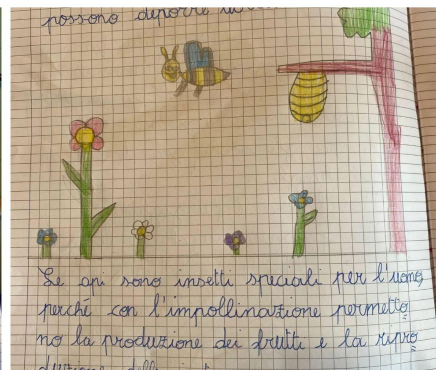 possono deporre
Le api sono insetti speciali per l'uomo,
perché con l'impollinazione permetto
no la produzione dei frutti e la ripro
duzione